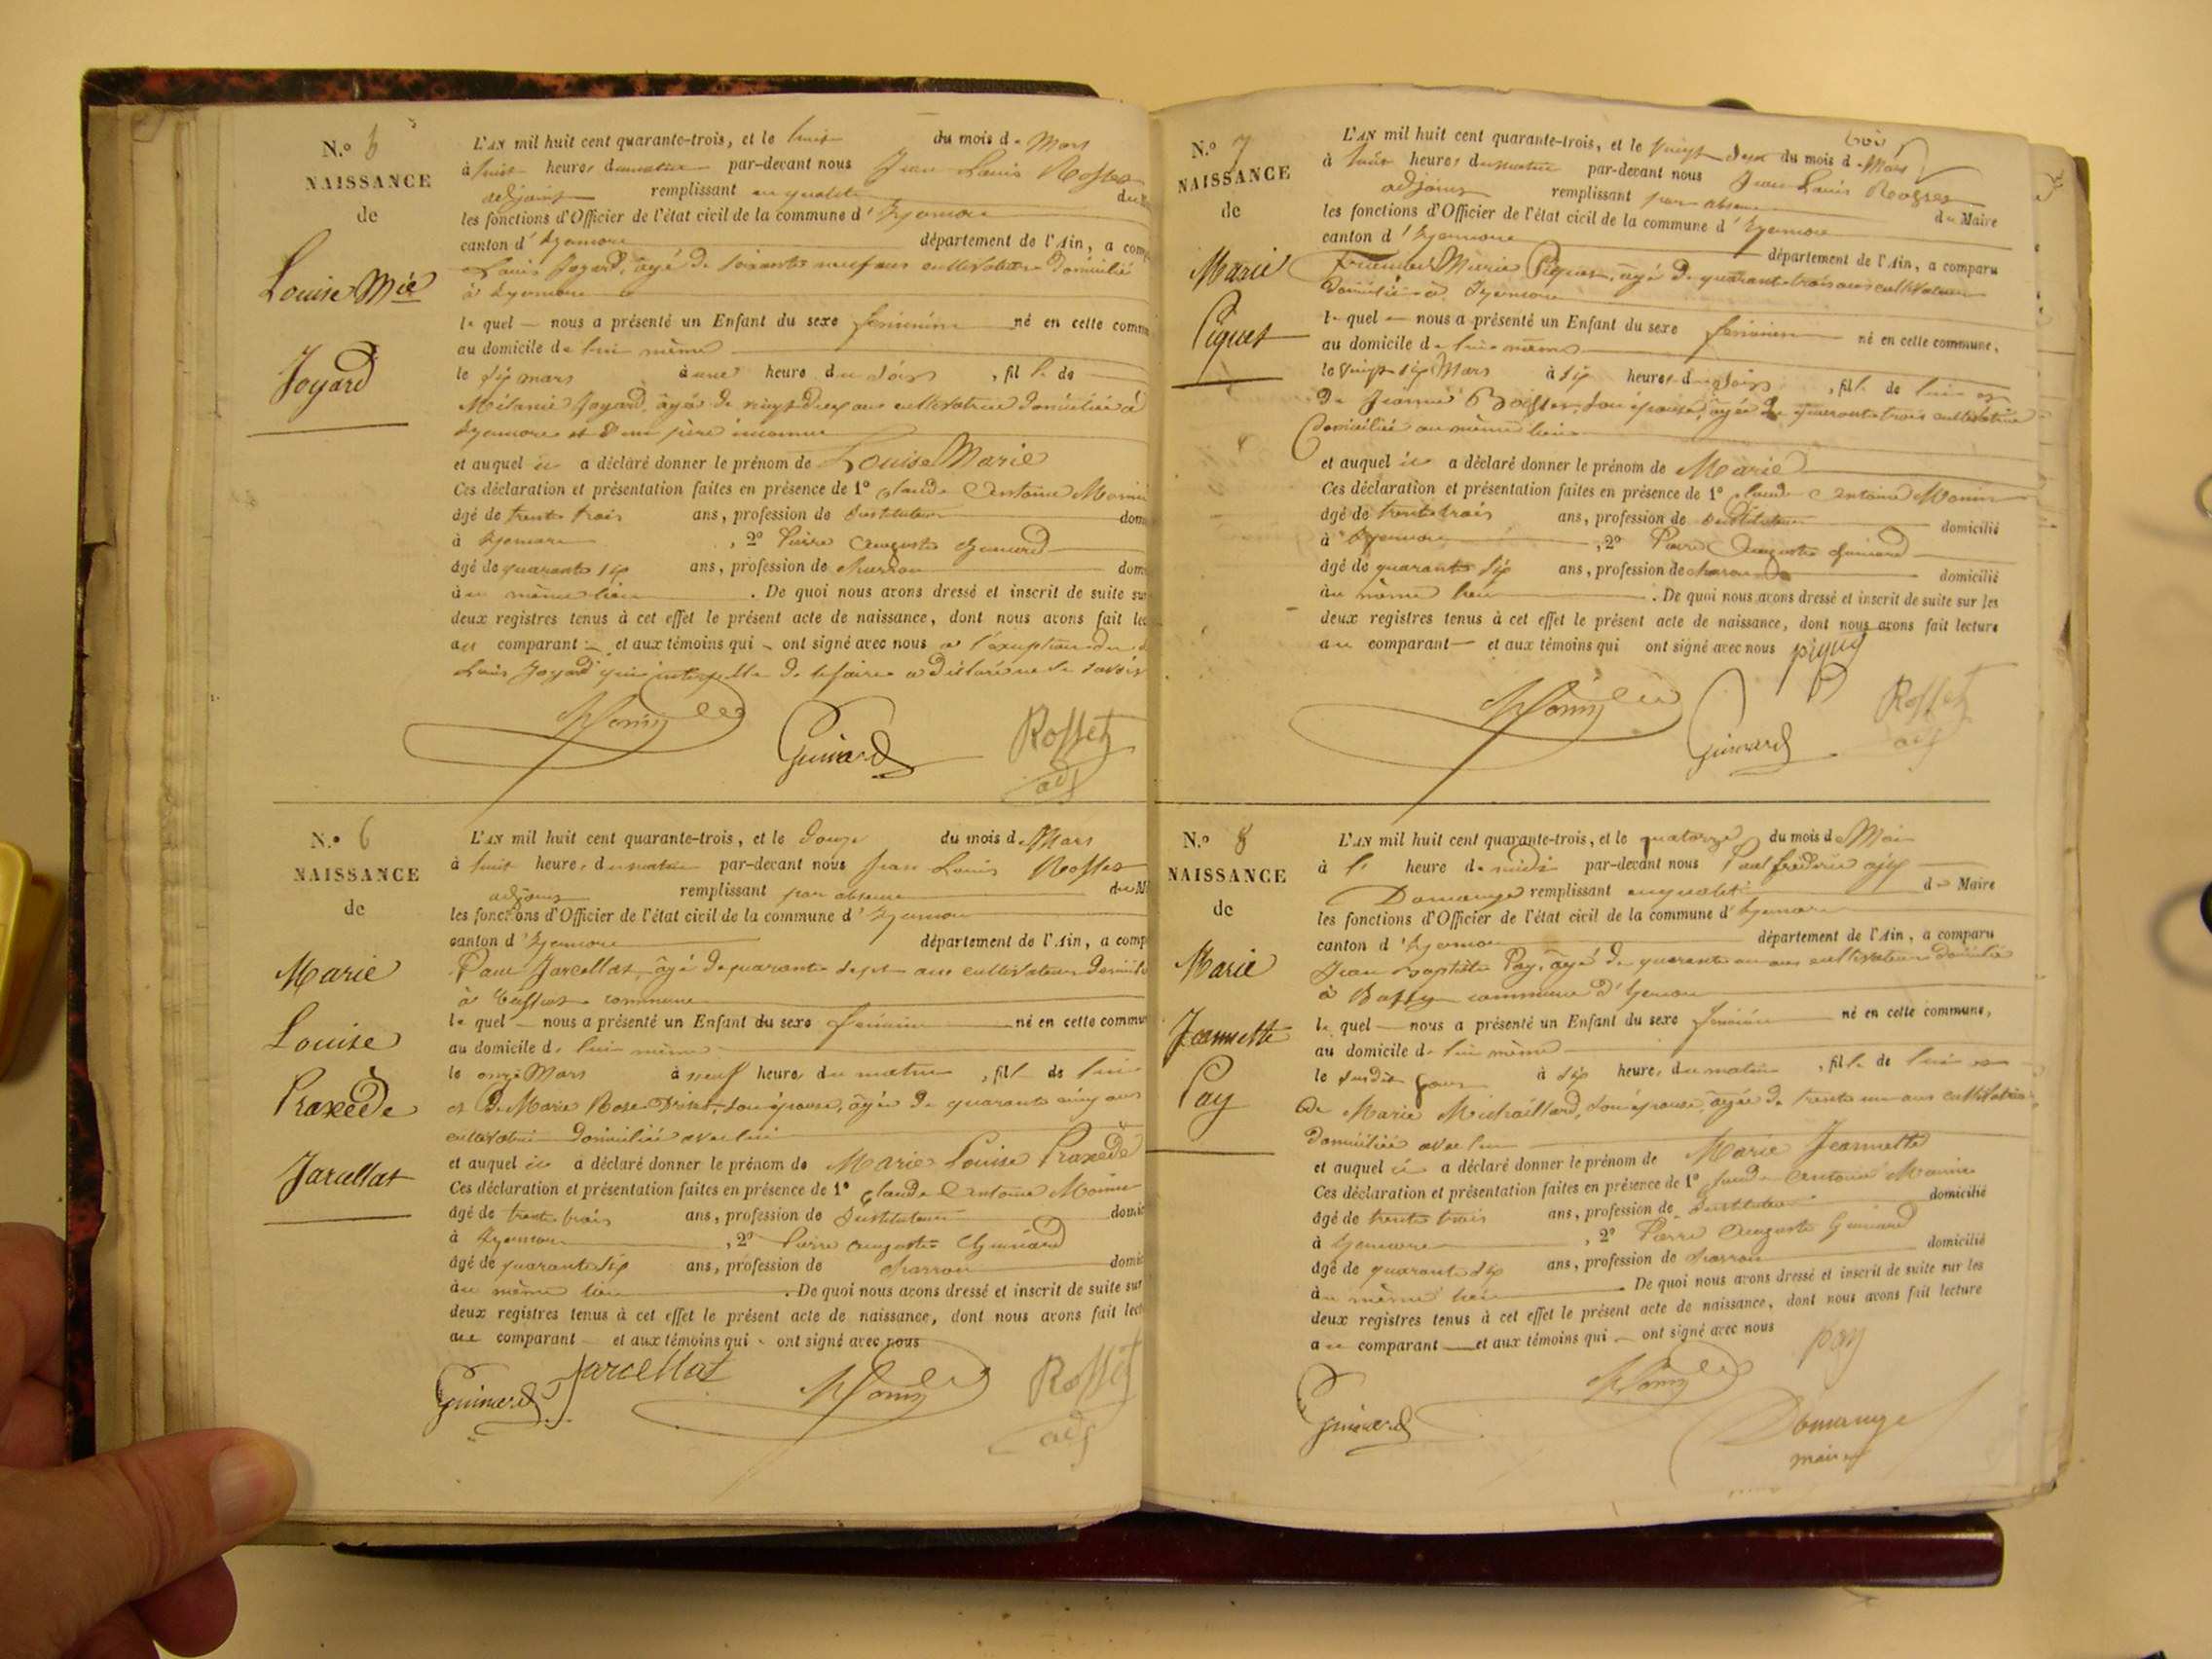 N.º 6
NAISSANCE
de
Louise Mie
Joyard
L'AN mil huit cent quarante-trois, et le huit du mois de Mars
à huit heures du matin par-devant nous Jean Louis Rosset
adjoint remplissant en qualité du
les fonctions d'Officier de l'état civil de la commune d'Izernore
canton d'Izernore département de l'Ain, a com
Louis Joyard, âgé de soixante neuf ans cultivateur domicilié
à Izernore
lequel nous a présenté un Enfant du sexe féminin né en cette comm
au domicile de lui même
le six mars à une heure du soir, fille de
Mélanie Joyard, âgée de vingt deux ans cultivatrice domiciliée à
Izernore et d'un père inconnu
et auquel il a déclaré donner le prénom de Louise Marie
Ces déclaration et présentation faites en présence de 1º Claude Antoine Monin
âgé de trente trois ans, profession de Instituteur dom
à Izernore, 2º Pierre Auguste Guinard
âgé de quarante six ans, profession de charron dom
au même lieu. De quoi nous avons dressé et inscrit de suite sur
deux registres tenus à cet effet le présent acte de naissance, dont nous avons fait lec
au comparant et aux témoins qui ont signé avec nous à l'exception du
Louis Joyard qui interpellé de le faire a déclaré ne le savoir
Monin
Guinard
Rosset
adj
N.º 6
NAISSANCE
de
Marie
Louise
Praxède
Jarcellat
L'AN mil huit cent quarante-trois, et le douze du mois de Mars
à huit heures du matin par-devant nous Jean Louis Rosset
adjoint remplissant par absence du M
les fonctions d'Officier de l'état civil de la commune d'Izernore
canton d'Izernore département de l'Ain, a comp
Paul Jarcellat, âgé de quarante sept ans cultivateur domicilié
à commune
lequel nous a présenté un Enfant du sexe féminin né en cette commu
au domicile de lui même
le onze Mars à neuf heures du matin, fille de lui
et de Marie Rose son épouse, âgée de quarante cinq ans
cultivatrice domiciliée avec lui
et auquel il a déclaré donner le prénom de Marie Louise Praxède
Ces déclaration et présentation faites en présence de 1º Claude Antoine Monin
âgé de trente trois ans, profession de Instituteur domic
à Izernore, 2º Pierre Auguste Guinard
âgé de quarante six ans, profession de charron domic
au même lieu. De quoi nous avons dressé et inscrit de suite sur
deux registres tenus à cet effet le présent acte de naissance, dont nous avons fait lect
au comparant et aux témoins qui ont signé avec nous
Guinard Jarcellat Monin Rosset
adj
N.º 7
NAISSANCE
de
Marie
Piquet
L'AN mil huit cent quarante-trois, et le vingt deux du mois de Mars
à huit heures du matin par-devant nous Jean Louis Rosset
adjoint remplissant par absence du Maire
les fonctions d'Officier de l'état civil de la commune d'Izernore
canton d'Izernore département de l'Ain, a comparu
Marie Piquet, âgé de quarante trois ans cultivateur
domicilié à Izernore
lequel nous a présenté un Enfant du sexe féminin né en cette commune,
au domicile de lui même
le vingt six Mars à six heures du soir, fille de lui et
de Jeanne son épouse, âgée de quarante trois cultivatrice
domiciliée au même lieu
et auquel il a déclaré donner le prénom de Marie
Ces déclaration et présentation faites en présence de 1º Claude Antoine Monin
âgé de trente trois ans, profession de Instituteur domicilié
à Izernore, 2º Pierre Auguste Guinard
âgé de quarante six ans, profession de charron domicilié
au même lieu. De quoi nous avons dressé et inscrit de suite sur les
deux registres tenus à cet effet le présent acte de naissance, dont nous avons fait lecture
au comparant et aux témoins qui ont signé avec nous
Monin
Guinard
Rosset
adj
N.º 8
NAISSANCE
de
Marie
Jeannette
Pay
L'AN mil huit cent quarante-trois, et le quatorze du mois de Mai
à l' heure de midi par-devant nous Paul frédéric
Domange remplissant en qualité de Maire
les fonctions d'Officier de l'état civil de la commune d'Izernore
canton d'Izernore département de l'Ain, a comparu
Jean Baptiste Pay, âgé de quarante un ans cultivateur domicilié
à commune d'Izernore
lequel nous a présenté un Enfant du sexe féminin né en cette commune,
au domicile de lui même
le susdit jour à six heures du matin, fille de lui et
de Marie Michaillard, son épouse, âgée de trente un ans cultivatrice
domiciliée avec lui
et auquel il a déclaré donner le prénom de Marie Jeannette
Ces déclaration et présentation faites en présence de 1º Claude Antoine Monin
âgé de trente trois ans, profession de Instituteur domicilié
à Izernore, 2º Pierre Auguste Guinard
âgé de quarante six ans, profession de charron domicilié
au même lieu. De quoi nous avons dressé et inscrit de suite sur les
deux registres tenus à cet effet le présent acte de naissance, dont nous avons fait lecture
au comparant et aux témoins qui ont signé avec nous pay
Monin
Guinard
Domange
maire